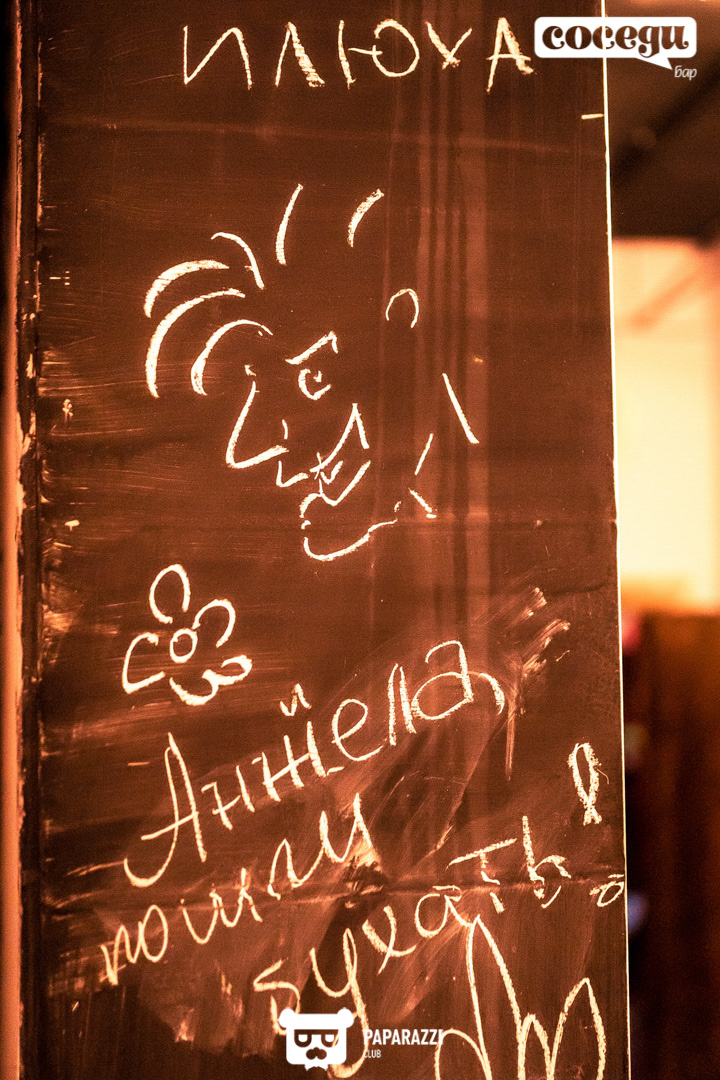 ИЛЮХА
соседи
бар
Анжела
пошли
бухать!
PAPARAZZI
CLUB